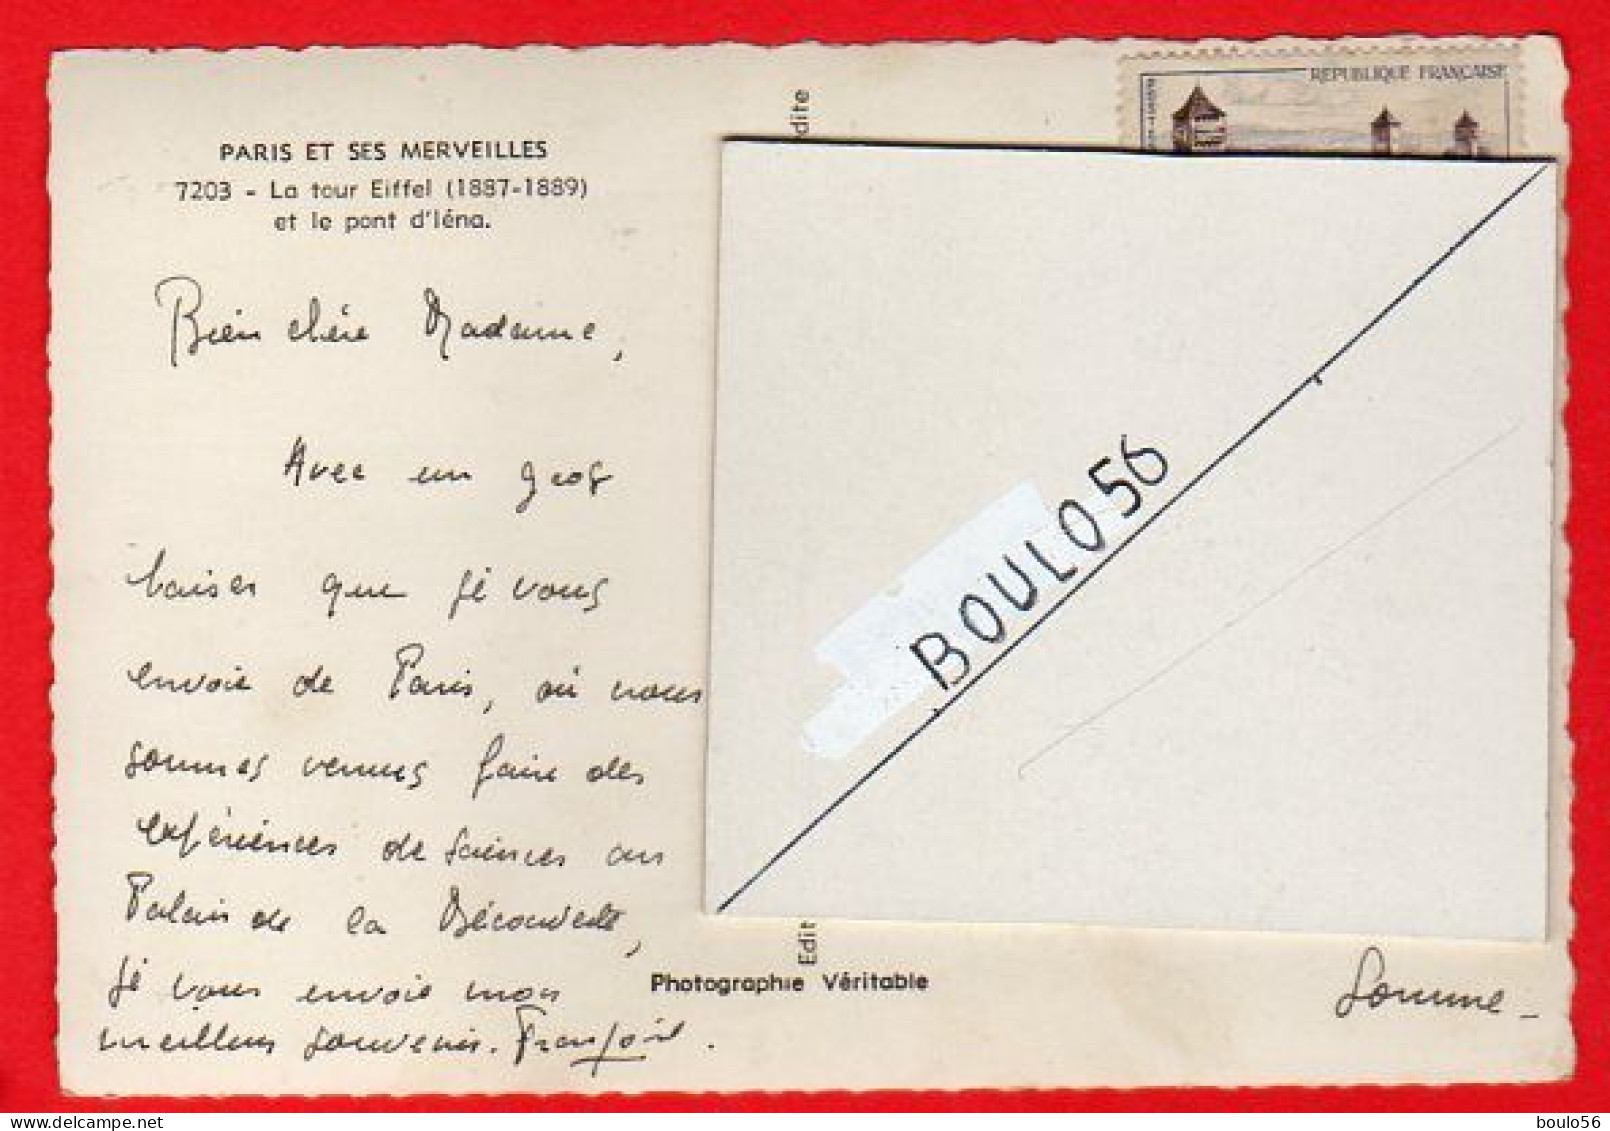 PARIS ET SES MERVEILLES
7203 - La tour Eiffel (1887-1889)
et le pont d'Iéna.
Bien chère Madame,
Avec un gros
baiser que je vous
envoie de Paris, où nous
sommes venus faire des
expériences de sciences au
Palais de la Découverte,
je vous envoie mon
meilleur souvenir.
REPUBLIQUE FRANÇAISE
dite
BOULO56
Edit
Photographie Véritable
Somme -
boulo56